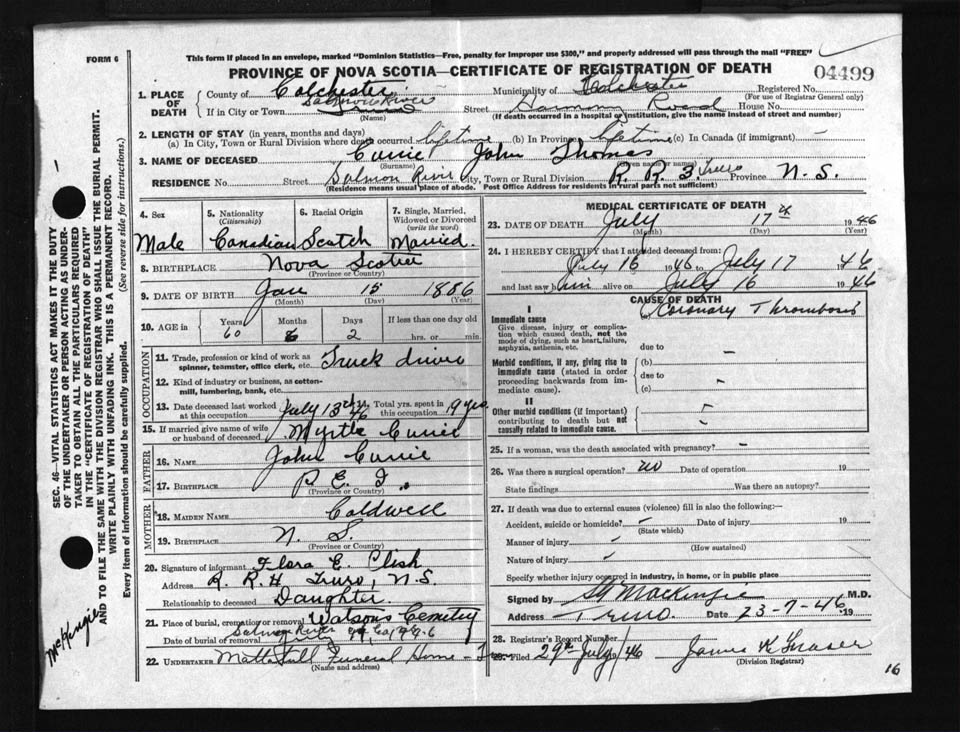 FORM 6
This form if placed in an envelope, marked "Dominion Statistics—Free, penalty for improper use $300," and properly addressed will pass through the mail "FREE"
PROVINCE OF NOVA SCOTIA—CERTIFICATE OF REGISTRATION OF DEATH
04499
1. PLACE OF DEATH
County of Colchester Municipality of Colchester Registered No.
(For use of Registrar General only)
If in City or Town Salmon River Street Road House No.
(Name) (If death occurred in a hospital or institution, give the name instead of street and number)
2. LENGTH OF STAY (in years, months and days)
(a) In City, Town or Rural Division where death occurred lifetime (b) In Province lifetime (c) In Canada (if immigrant) —
3. NAME OF DECEASED Currie John Thomas
(Surname) (Given name or names)
RESIDENCE No. Street Salmon River City, Town or Rural Division R. R. 3. Truro Province N. S.
(Residence means usual place of abode. Post Office Address for residents in rural parts not sufficient)
4. Sex
Male
5. Nationality
(Citizenship)
Canadian
6. Racial Origin
Scotch
7. Single, Married, Widowed or Divorced
(write the word)
Married.
8. BIRTHPLACE Nova Scotia
(Province or Country)
9. DATE OF BIRTH Jan 15 1886
(Month) (Day) (Year)
10. AGE in Years Months Days If less than one day old
60 6 2 hrs. or min.
OCCUPATION
11. Trade, profession or kind of work as spinner, teamster, office clerk, etc. Truck driver
12. Kind of industry or business, as cotton-mill, lumbering, bank, etc.
13. Date deceased last worked at this occupation July 13th 46 Total yrs. spent in this occupation 19 yrs.
15. If married give name of wife or husband of deceased Myrtle Currie
FATHER
16. NAME John Currie
17. BIRTHPLACE P. E. I.
(Province or Country)
MOTHER
18. MAIDEN NAME Coldwell
19. BIRTHPLACE N. S.
(Province or Country)
20. Signature of informant Flora E. Clish
Address Truro, N.S.
Relationship to deceased Daughter
21. Place of burial, cremation or removal Watsons Cemetery
Salmon River
Date of burial or removal
22. UNDERTAKER Mattatall Funeral Home —
(Name and address)
MEDICAL CERTIFICATE OF DEATH
23. DATE OF DEATH July 17th 1946
(Month) (Day) (Year)
24. I HEREBY CERTIFY that I attended deceased from:
July 16 1946 to July 17 1946
and last saw him alive on July 16 1946
CAUSE OF DEATH
I
Immediate cause
Give disease, injury or complication which caused death, not the mode of dying, such as heart failure, asphyxia, asthenia, etc.
(a) Coronary Thrombosis
due to —
Morbid conditions, if any, giving rise to immediate cause (stated in order proceeding backwards from immediate cause).
(b)
due to —
(c)
II
Other morbid conditions (if important) contributing to death but not causally related to immediate cause.
25. If a woman, was the death associated with pregnancy? —
26. Was there a surgical operation? no Date of operation 19
State findings Was there an autopsy?
27. If death was due to external causes (violence) fill in also the following:—
Accident, suicide or homicide? — Date of injury 19
(State which)
Manner of injury
(How sustained)
Nature of injury
Specify whether injury occurred in industry, in home, or in public place
Signed by MacKenzie M.D.
Address Truro. Date 23-7-46 19
28. Registrar's Record Number
Filed 29th July/46 James K Fraser
(Division Registrar)
16
SEC. 46—VITAL STATISTICS ACT MAKES IT THE DUTY OF THE UNDERTAKER OR PERSON ACTING AS UNDERTAKER TO OBTAIN ALL THE PARTICULARS REQUIRED IN THE "CERTIFICATE OF REGISTRATION OF DEATH" AND TO FILE THE SAME WITH THE DIVISION REGISTRAR WHO SHALL ISSUE THE BURIAL PERMIT.
WRITE PLAINLY WITH UNFADING INK. THIS IS A PERMANENT RECORD.
Every item of information should be carefully supplied. (See reverse side for instructions.)
McKenzie